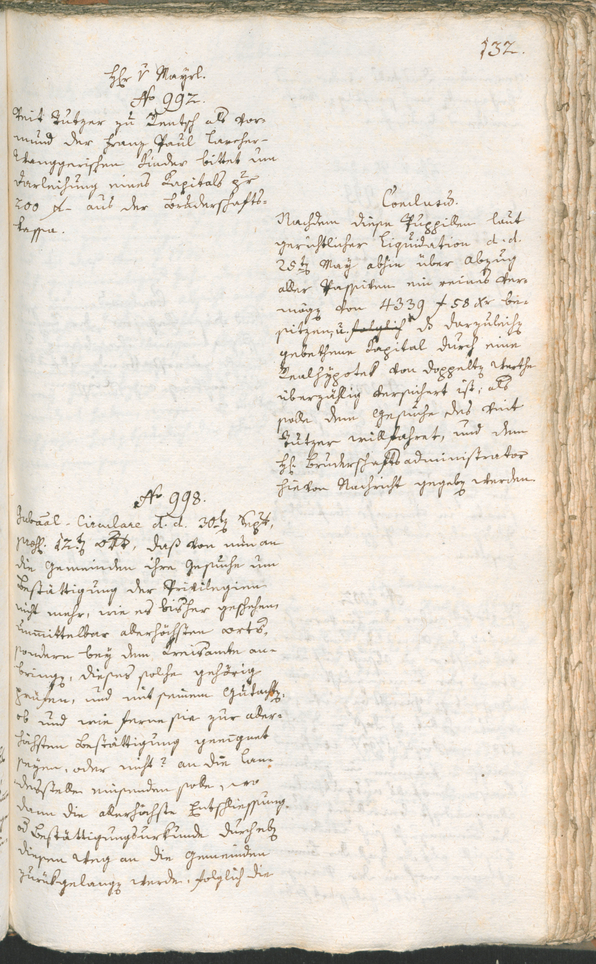 132.
H: v Mayrl.
No 992.
Veit Tutzer zu Teutsch als Vor-
mund der Franz Paul Larcher-
Wanggerischen Kinder bittet um
Darleihung eines Kapitals pr
200 f. aus der Bruderschafts-
kassa.
Conclusum.
Nachdem diese Puppillen laut
gerichtlicher Liquidation d. d.
25ten May abhin über Abzug
aller Passiven ein reines Ver-
mögen von 4339 f 58 xr be-
sitzen, u. folglich ds darzuleihen
gebethene Kapital durch eine
Realhypotek von doppelten Werthe
überzählig versichert ist; als
solle dem Gesuche des Veit
Tutzer willfahret, und dem
H: Bruderschaftsadministrator
hievon Nachricht gegeben werden
No 993.
Gubernial-Circulare d. d. 30ten Sept,
12ten Okt, daß von nun an
die Gemeinden ihre Gesuche um
Bestättigung der Privilegien
nicht mehr, wie es bisher geschehen,
unmittelbar allerhöchsten Orts,
sondern bey dem Kreisamte an-
bringen, dieses solche gehörig
prüfen, und mit seinem Gutachten,
ob und wie ferne sie zur aller-
höchsten Bestättigung geeignet
seyen, oder nicht? an die Lan-
desstelle einsenden solle, wo
dann die allerhöchste Entschliessung
od Bestättigungsurkunde durch eben
diesen Weg an die Gemeinden
zurückgelangen werde, folglich die